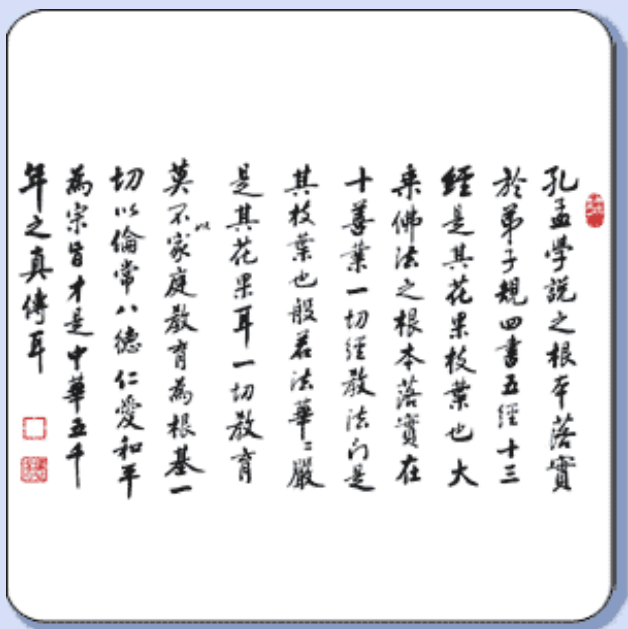 孔孟學説之根本落實
於弟子規四書五經十三
經是其花果枝葉也大
乗佛法之根本落實在
十善業一切經教法门是
其枝葉也般若法華〻嚴
是其花果耳一切教育
莫不以家庭教育為根基一
切以倫常八德仁愛和平
為宗旨才是中華五千
年之真傳耳